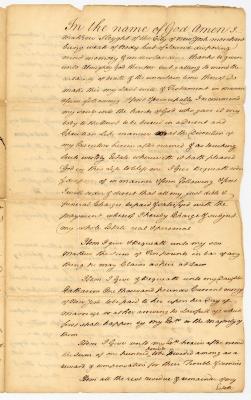 In the name of God Amen I.
of the City of New York merchant
being weak of Body but of Sound disposing
mind memory & understanding thanks be given
unto Almighty God therefor but calling to mind the
of death & the uncertain time thereof do
make this my Last will & Testament in manner
form following First & Principally I recommend
my soul into the hands of God who gave it my
body to be buried in a decent and
Christian Like manner at the Discretion of
my Executors herein after named & as touching
such worldly Estate wherewith it hath pleased
God in this Life to bless me I Give Bequeath and
dispose of in manner & form following First
I will order & direct that all my just debts &
funeral Charges be paid & satisfied with the
payment whereof I hereby Charge & subject
my whole Estate real & personal
Item I give & bequeath unto my son
the sum of in bar of any
thing he may Claim as heir at Law
Item I Give & bequeath unto my Daughter
Catherine One thousand pounds Current money
of New York to be paid to her upon her Day of
marriage or after coming to Lawful age which
first shall happen by my to the Majority of
them
Item I Give unto my herein after named
the sum of one hundred to be Divided among as a
reward & compensation for their Trouble
Item all the rest residue & remainder of my
Estate